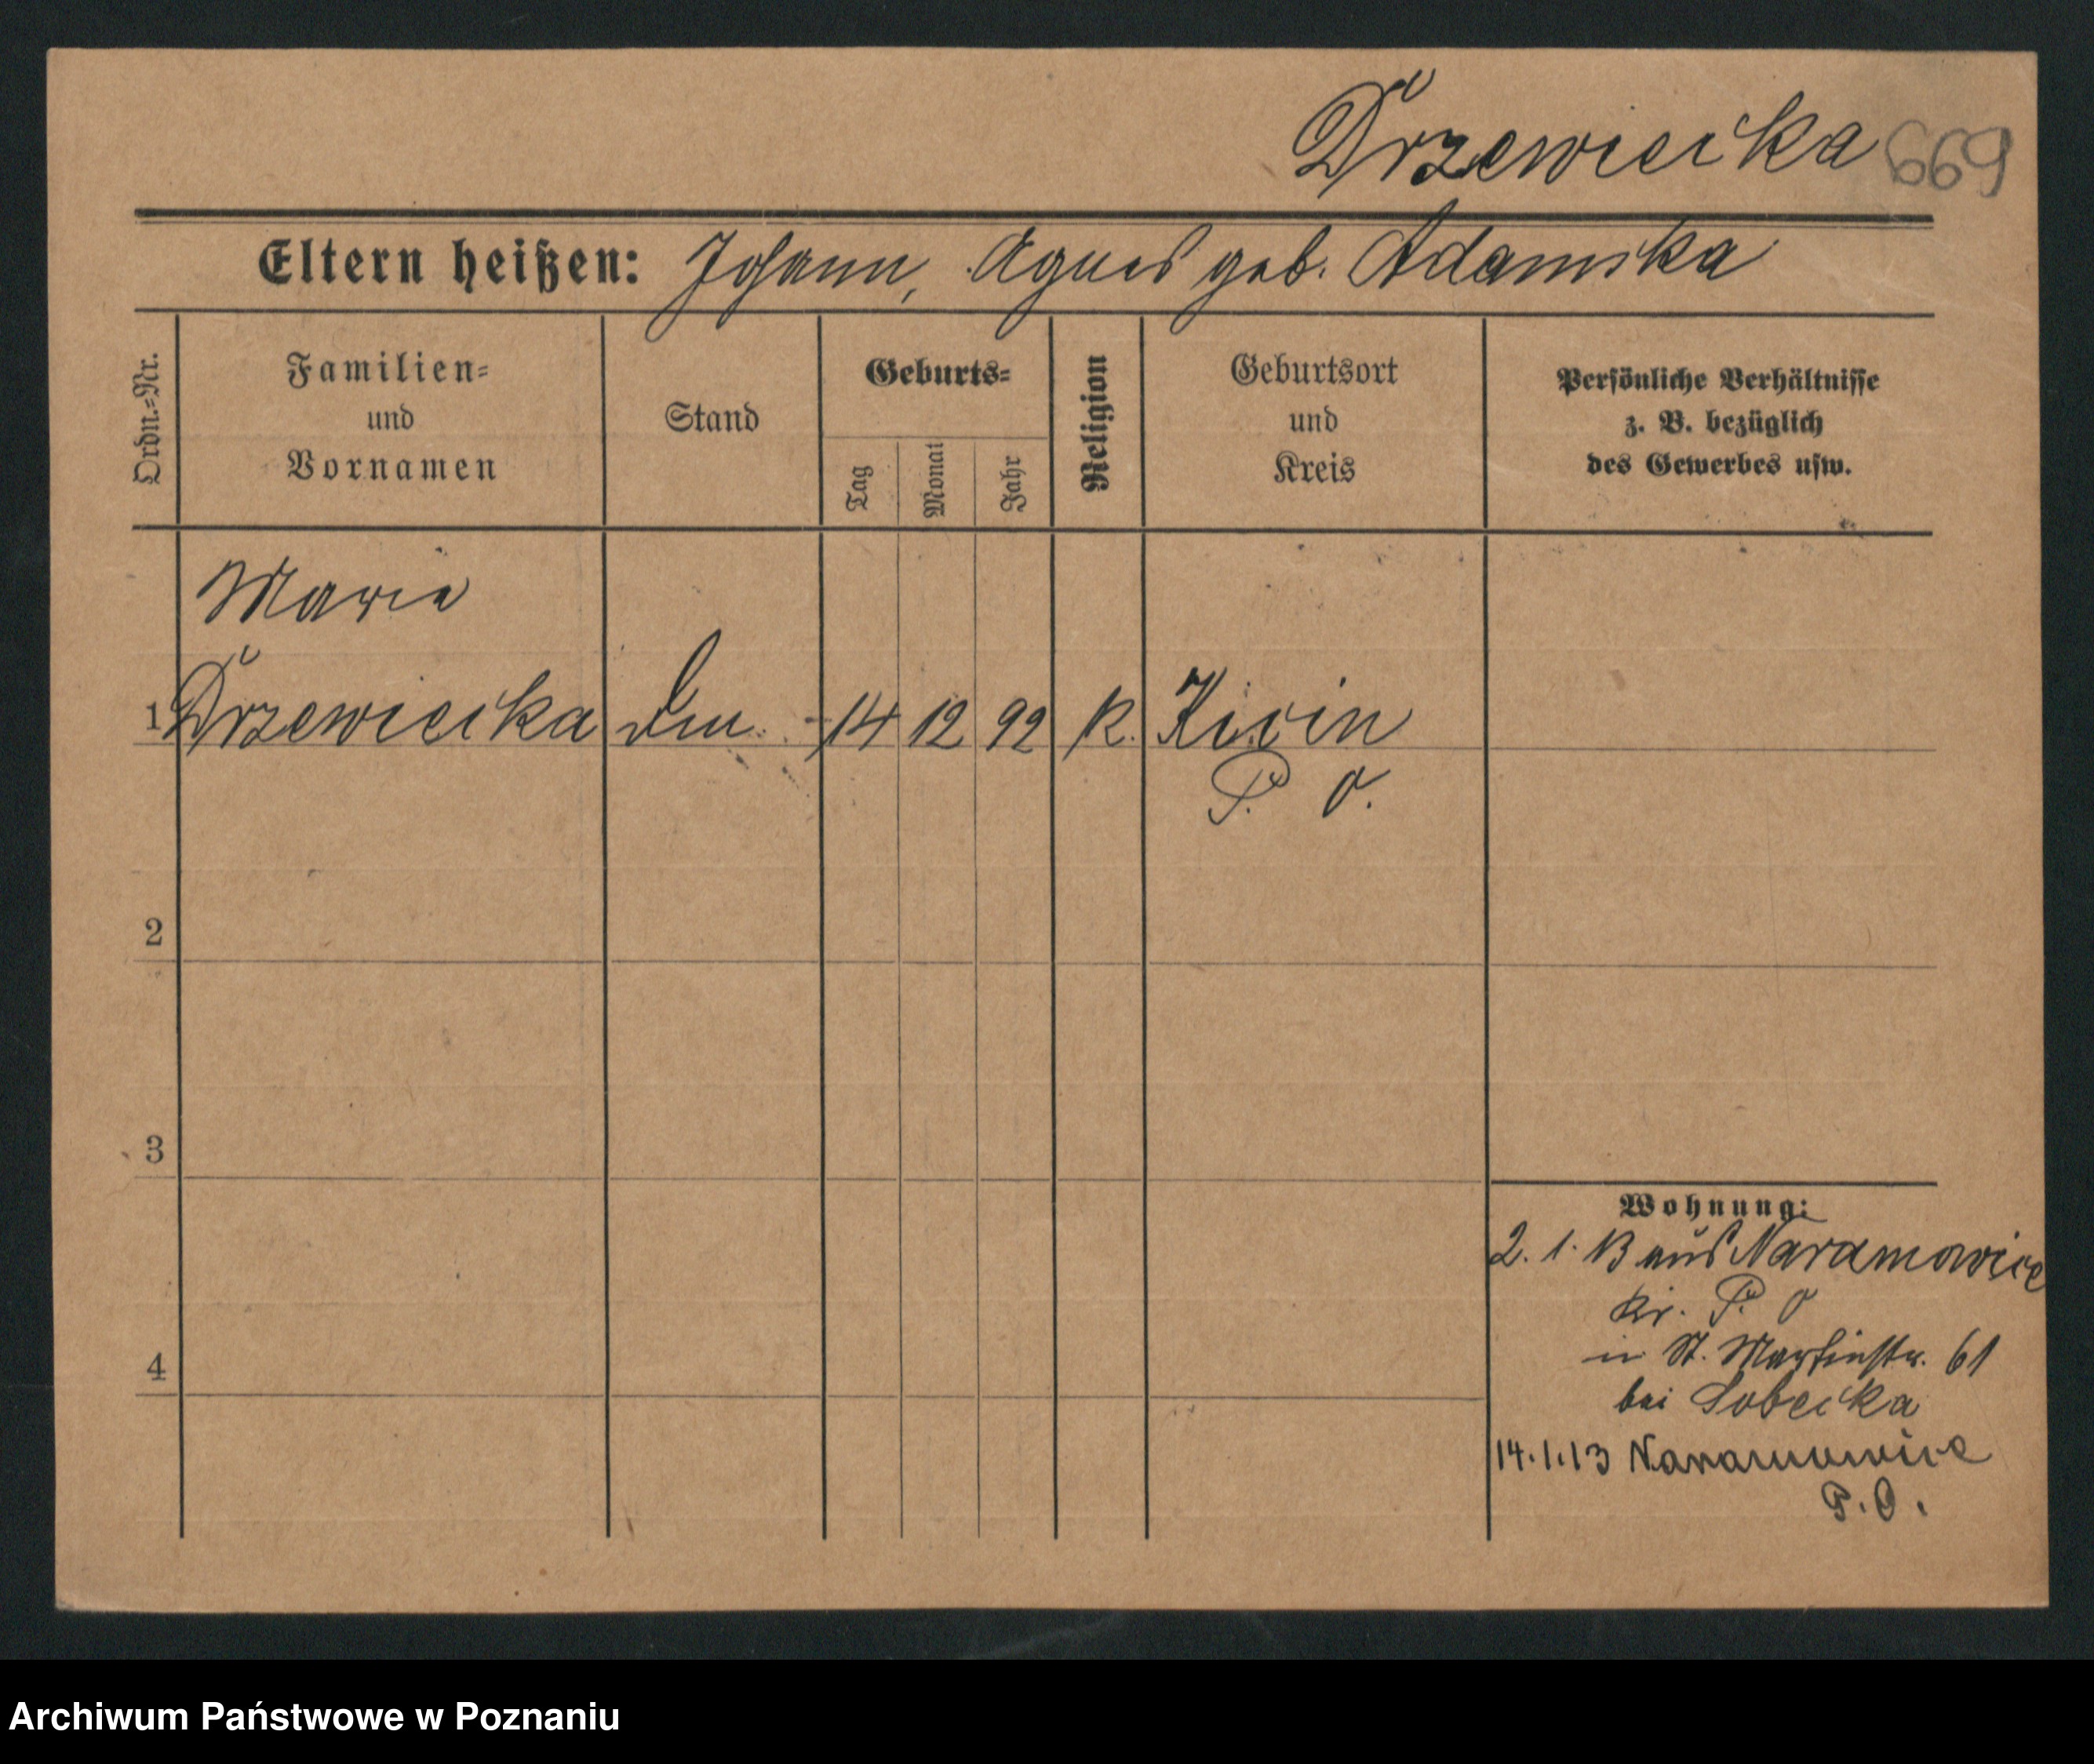 Drzewiecka 669
Eltern heißen: Johann, Agnes geb. Adamska
Ordn.-Nr.
Familien-
und
Vornamen
Stand
Geburts-
Tag
Monat
Jahr
Religion
Geburtsort
und
Kreis
Persönliche Verhältnisse
z. B. bezüglich
des Gewerbes usw.
Marie
1 Drzewiecka 14 12 92 K. Kicin
P. O.
2
3
4
Wohnung:
2. 1. 13 aus Naramowice
Kr. P. O
in St. Martinstr. 61
bei Sobecka
14.1.13 Naramowice
P.O.
Archiwum Państwowe w Poznaniu